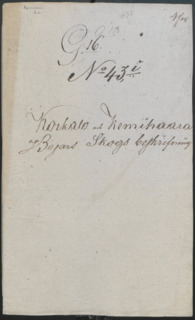 G. 16.
No 43, i.
Korkalo och Kemihaara
Byars Skogs beskrifning